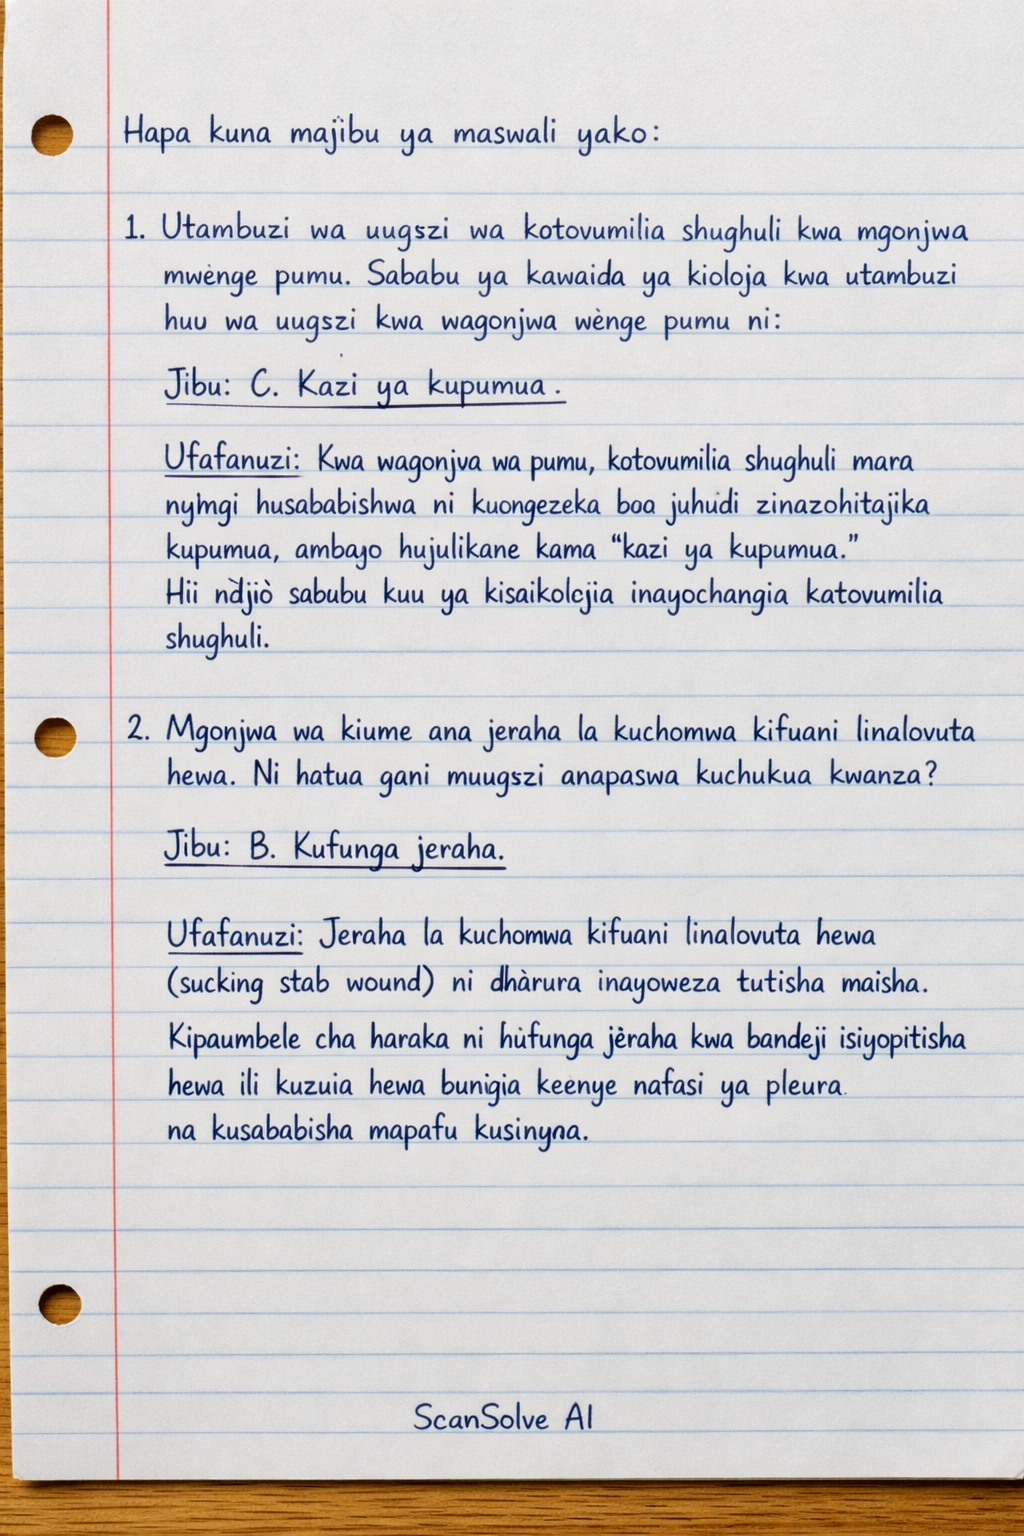 Hapa kuna majibu ya maswali yako:
1. Utambuzi wa uugszi wa kotovumilia shughuli kwa mgonjwa
mwènge pumu. Sababu ya kawaida ya kioloja kwa utambuzi
huu wa uugszi kwa wagonjwa wènge pumu ni:
Jibu: C. Kazi ya kupumua.
Ufafanuzi: Kwa wagonjva wa pumu, kotovumilia shughuli mara
husababishwa ni kuongezeka boa juhudi zinazohitajika
kupumua, ambajo hujulikane kama “kazi ya kupumua.”
Hii sabubu kuu ya kisaikolcjia inayochangia katovumilia
shughuli.
2. Mgonjwa wa kiume ana jeraha la kuchomwa kifuani linalovuta
hewa. Ni hatua gani muugszi anapaswa kuchukua kwanza?
Jibu: B. Kufunga jeraha.
Ufafanuzi: Jeraha la kuchomwa kifuani linalovuta hewa
(sucking stab wound) ni dhàrura inayoweza tutisha maisha.
Kipaumbele cha haraka ni hùfunga jèraha kwa bandeji isiyopitisha
hewa ili kuzuia hewa bunigia keenye nafasi ya pleura.
na kusababisha mapafu kusinyna.
ScanSolve AI